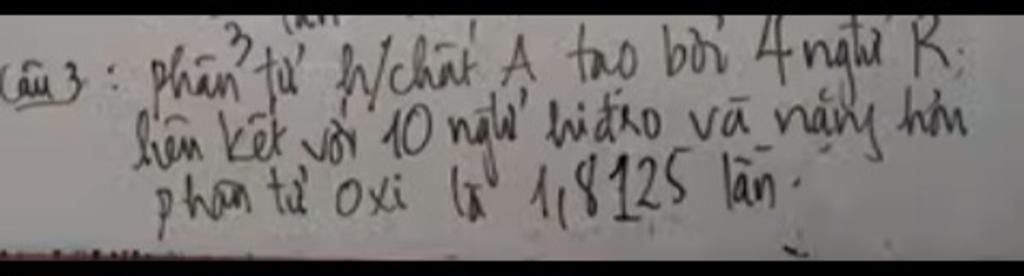 Câu 3 : phân tử h/chất A tạo bởi 4 ngtử R
liên kết với 10 ngtử hiđro và nặng hơn
phân tử oxi là 1,8125 lần.